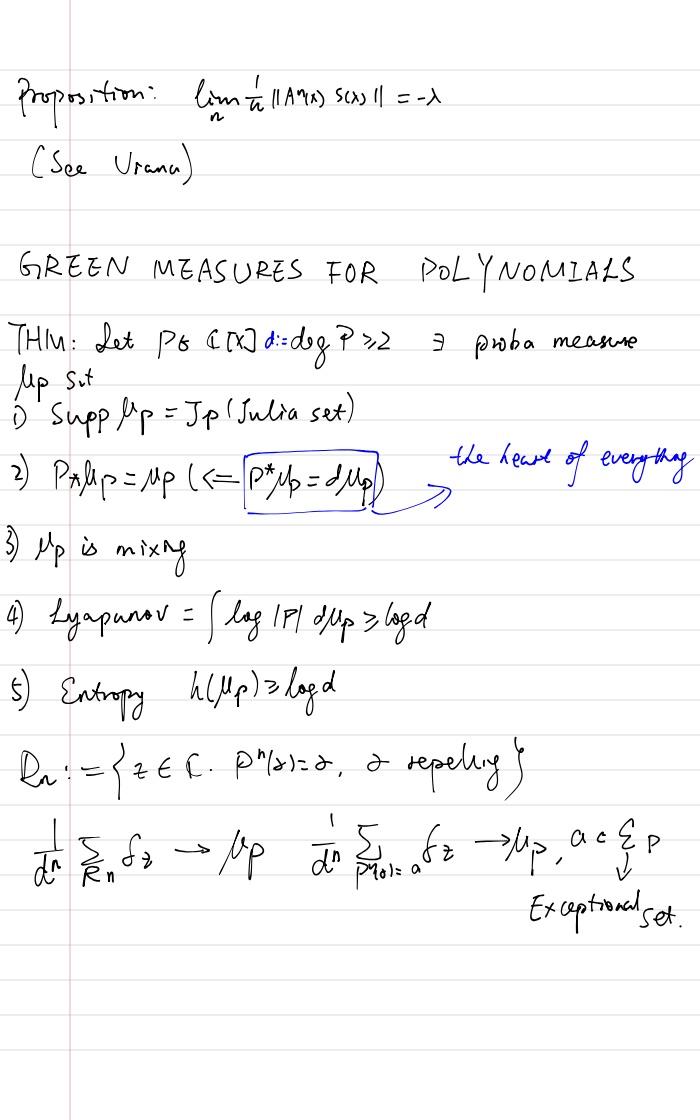 Proposition: lim_n 1/n ||A^n(x) S(x)|| = -λ
(See Viana)
GREEN MEASURES FOR POLYNOMIALS
THM: Let P∈ ℂ[X] d:=deg P ≥2 ∃ proba measure
μp s.t
1) Supp μp = Jp (Julia set)
2) P*μp = μp (<= P*μp = dμp) the heart of everything
3) μp is mixing
4) Lyapunov = ∫ log |P| dμp ≥ log d
5) Entropy h(μp) ≥ log d
Rn := {z ∈ ℂ. P^n(z)=z, z repelling}
1/d^n Σ_{Rn} δz → μp 1/d^n Σ_{P^n(z)=a} δz → μp, a ∈ Σp
Exceptional set.